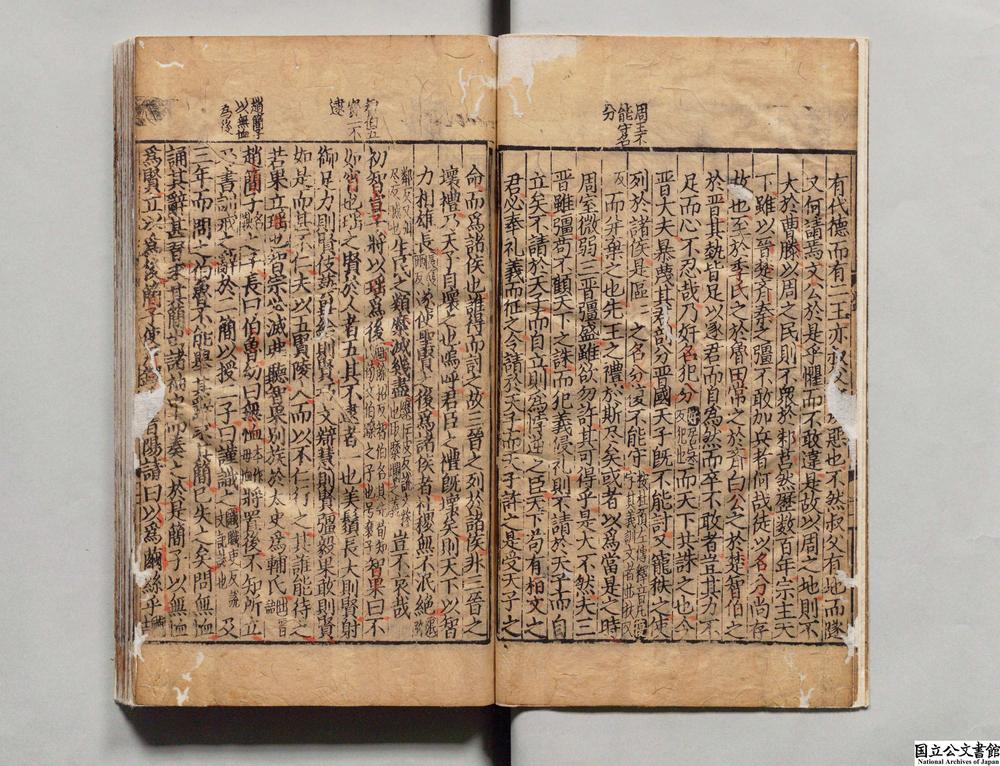 周王不
能守名
分
有代德而有二王亦叔父之惡也不然叔父有地而隧
又何請焉文公於是乎懼而不敢違是故以周之地則不
大於曹滕以周之民則不眾於邾莒然歷數百年宗主天
下雖以晉楚齊秦之彊不敢加兵者何哉徒以名分尚存
故也至於季氏之於魯田常之於齊白公之於楚智伯之
於晉其勢皆足以逐君而自為然而卒不敢者豈其力不
足而心不忍哉乃奸名犯分而天下共誅之也今
晉大夫暴蔑其君剖分晉國天子既不能討又寵秩之使
列於諸侯是區之名分復不能守
而并棄之也先王之禮於斯尽矣或者以爲當是之時
周室微弱三晉彊盛雖欲勿許其可得乎是大不然夫三
晉雖彊苟不顧天下之誅而犯義侵礼則不請於天子而自
立矣不請於天子而自立則爲悖逆之臣天下苟有桓文之
君必奉礼義而征之今請於天子而天子許之是受天子之
智伯五
賢一不
逮
趙簡子
以無恤
為後
命而爲諸侯也誰得而討之故三晉之列於諸侯非三晉之
壞禮乃天子自壞之也嗚呼君臣之禮既壞矣則天下以智
力相雄長遂使聖賢之後爲諸侯者社稷無不泯絕
生民之類糜滅幾盡豈不哀哉
初智宣子將以瑤爲後智果曰不
如宵也瑤之賢於人者五其不逮者一也美鬢長大則賢射
御足力則賢伎藝畢給則賢巧文辯慧則賢彊毅果敢則賢
如是而甚不仁夫以五賢陵人而以不仁行之其誰能待之
若果立瑤也智宗必滅弗聽智果別族於太史爲輔氏
趙簡子之子長曰伯魯幼曰無恤將置後不知所立
乃書訓戒之辭於二簡以授二子曰謹識之
三年而問之伯魯不能舉其辭求其簡已失之矣問無恤
誦其辭甚習求其簡出諸袖中而奏之於是簡子以無恤
爲賢立以爲後簡子使尹鐸爲晉陽請曰以爲繭絲乎
国立公文書館
National Archives of Japan